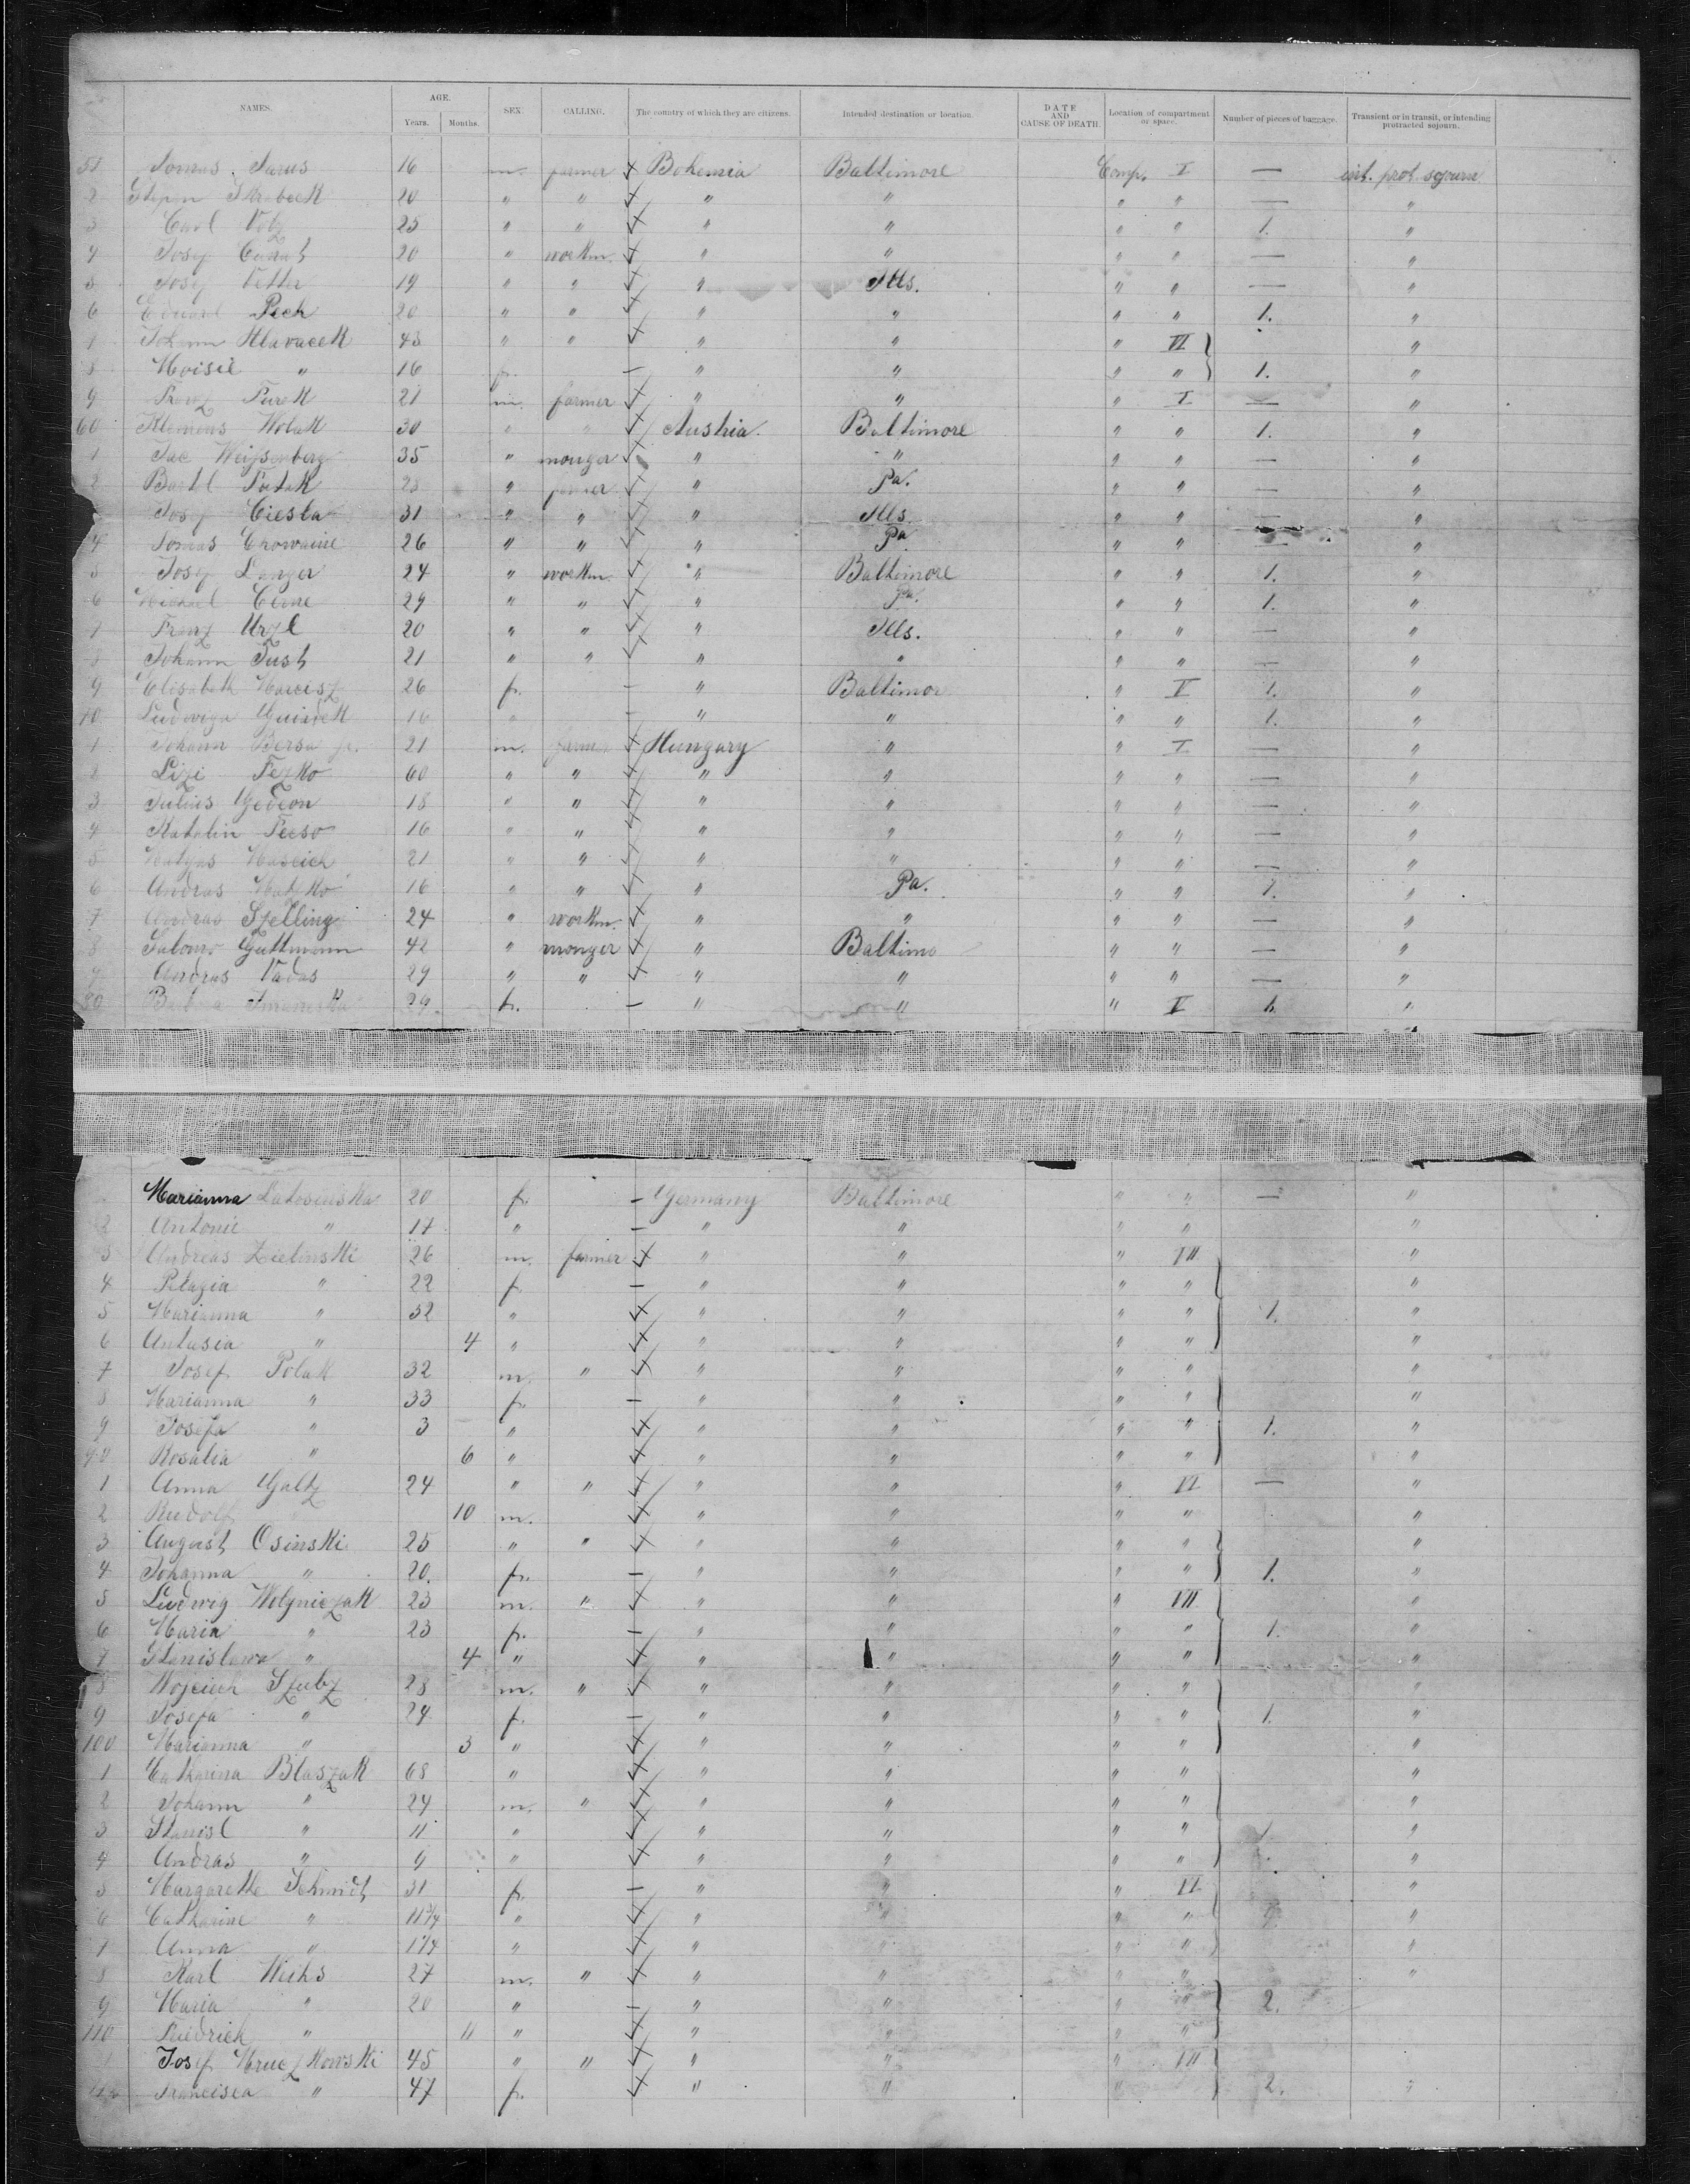 NAMES. AGE. SEX. CALLING. The country of which they are citizens. Intended destination or location. DATE AND CAUSE OF DEATH. Location of compartment or space. Number of pieces of baggage. Transient or in transit, or intending protracted sojourn.
Years. Months.
51 16 m. farmer Bohemia Baltimore Comp. I — int. prot. sojourn
2 20 " " " " " " — "
3 Carl 25 " " " " " " 1. "
4 Josef 20 " workm. " " " " — "
5 Josef Vetter 19 " " " Ills. " " — "
6 Eduard Pech 20 " " " " " " 1. "
7 Johann Hlavacek 43 " " " " " VI "
8 16 f. — " " " " 1. "
9 Franz Turek 21 m. farmer " " " I — "
60 Klemens Wolak 30 " " Austria Baltimore " " 1. "
1 Weissenberg 35 " monger " " " " — "
2 23 " farmer " Pa. " " — "
3 Josef Ciesla 31 " " " Ills. " " — "
4 Tomas 26 " " " Pa " " — "
5 Josef 24 " workm. " Baltimore " " 1. "
6 Michael 29 " " " Pa. " " 1. "
7 Franz Urzl 20 " " " Ills. " " — "
8 Johann Tust 21 " " " " " " — "
9 Elisabeth Marcisz 26 f. — " Baltimor " V 1. "
70 Ludwiga 16 " — " " " " 1. "
1 Johann Bersa jr. 21 m. farm. Hungary " " I — "
2 Lizi Tezko 60 " " " " " " — "
3 Julius Gedeon 18 " " " " " " — "
4 Katalin 16 " " " " " " — "
5 21 " " " " " " — "
6 Andras Matzko 16 " " " Pa. " " 1. "
7 Andras Szelling 24 " workm. " " " " — "
8 Guttmann 42 " monger " Baltimo " " — "
9 Andras Vadas 29 " " " " " " — "
80 29 f. — " " " V 1. "
Marianna Latosinska 20 f. — Germany Baltimore " " — "
2 Antonie " 17 " — " " " " "
3 Andreas Zielinski 26 m. farmer " " " VII "
4 Pelagia " 22 f. — " " " " "
5 Marianna " 32 " " " " " 1. "
6 Antasia " 4 " " " " " "
7 Josef Polak 32 m. " " " " " "
8 Marianna " 33 f. — " " " " "
9 Josefa " 3 " " " " " 1. "
90 Rosalia " 6 " " " " " "
1 Anna Galtz 24 " " " " " VI — "
2 Rudolf 10 m. " " " " "
3 August Osinski 25 " " " " " " "
4 Johanna " 20. f. — " " " " 1. "
5 Ludwig Wolyniczak 23 m. " " " " VII "
6 Maria " 23 f. — " " " " 1. "
7 Stanislawa " 4 " " " " " "
8 Wojciech Szubz 28 m. " " " " " "
9 Josefa " 24 f. — " " " " 1. "
100 Marianna " 3 " " " " " "
1 Catharina Blaszak 68 " " " " " "
2 Johann " 24 m. " " " " " "
3 Stanisl " 11 " " " " " 1 "
4 Andras " 9 " " " " " "
5 Margarethe Schmidt 31 f. — " " " VI "
6 Catharine " 11 3/4 " " " " " "
7 Anna " " " " " " "
8 Karl Weihs 27 m. " " " " " "
9 Maria " 20 " — " " " " 2.
110 Friedrich " 11 " " " " "
1 Josef Mruczkowski 45 " " " " " VII
Francisca " 47 f. " " " 2. "